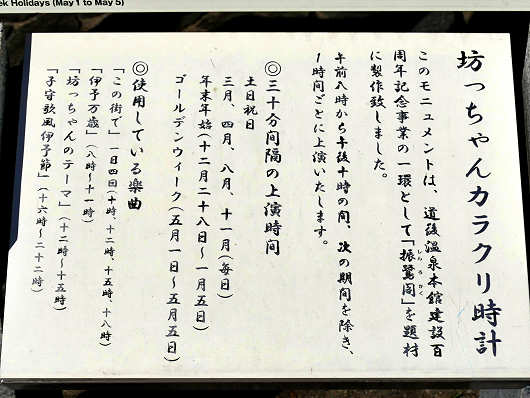 ek Holidays (May 1 to May 5)
坊っちゃんカラクリ時計
このモニュメントは、道後温泉本館建設百
周年記念事業の一環として「振鷺閣」を題材
に製作致しました。
午前八時から午後十時の間、次の期間を除き、
1時間ごとに上演いたします。
◎三十分間隔の上演時間
土日祝日
三月、四月、八月、十一月(毎日)
年末年始(十二月二十八日〜一月五日)
ゴールデンウィーク(五月一日〜五月五日)
◎使用している楽曲
「この街で」一日四回(十時、十二時、十五時、十八時)
「伊予万歳」(八時〜十一時)
「坊っちゃんのテーマ」(十二時〜十五時)
「子守歌風伊予節」(十六時〜二十二時)